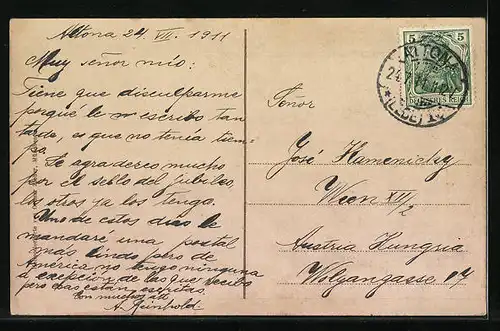 Altona 24. VII. 1911
Muy señor mio:
Tiene que disculparme
porqué le escribo tan
tardo, es que no tenía tiem-
po.
Le agradezco mucho
por el sello del jubileo,
los otros ya los tengo.
Uno de estos dias le
mandaré una postal
más linda pero de
América no tengo ninguna
a excepción de las que recibo
pero esas están escritas.
Con mucho
A. Reinhold.
5 5
ALTONA
24.7.11
*(ELBE) 1
DEUTSCHES REICH
Señor
José Hamenichy
Wien XII/2
Austria Hungria
Wolgangasse